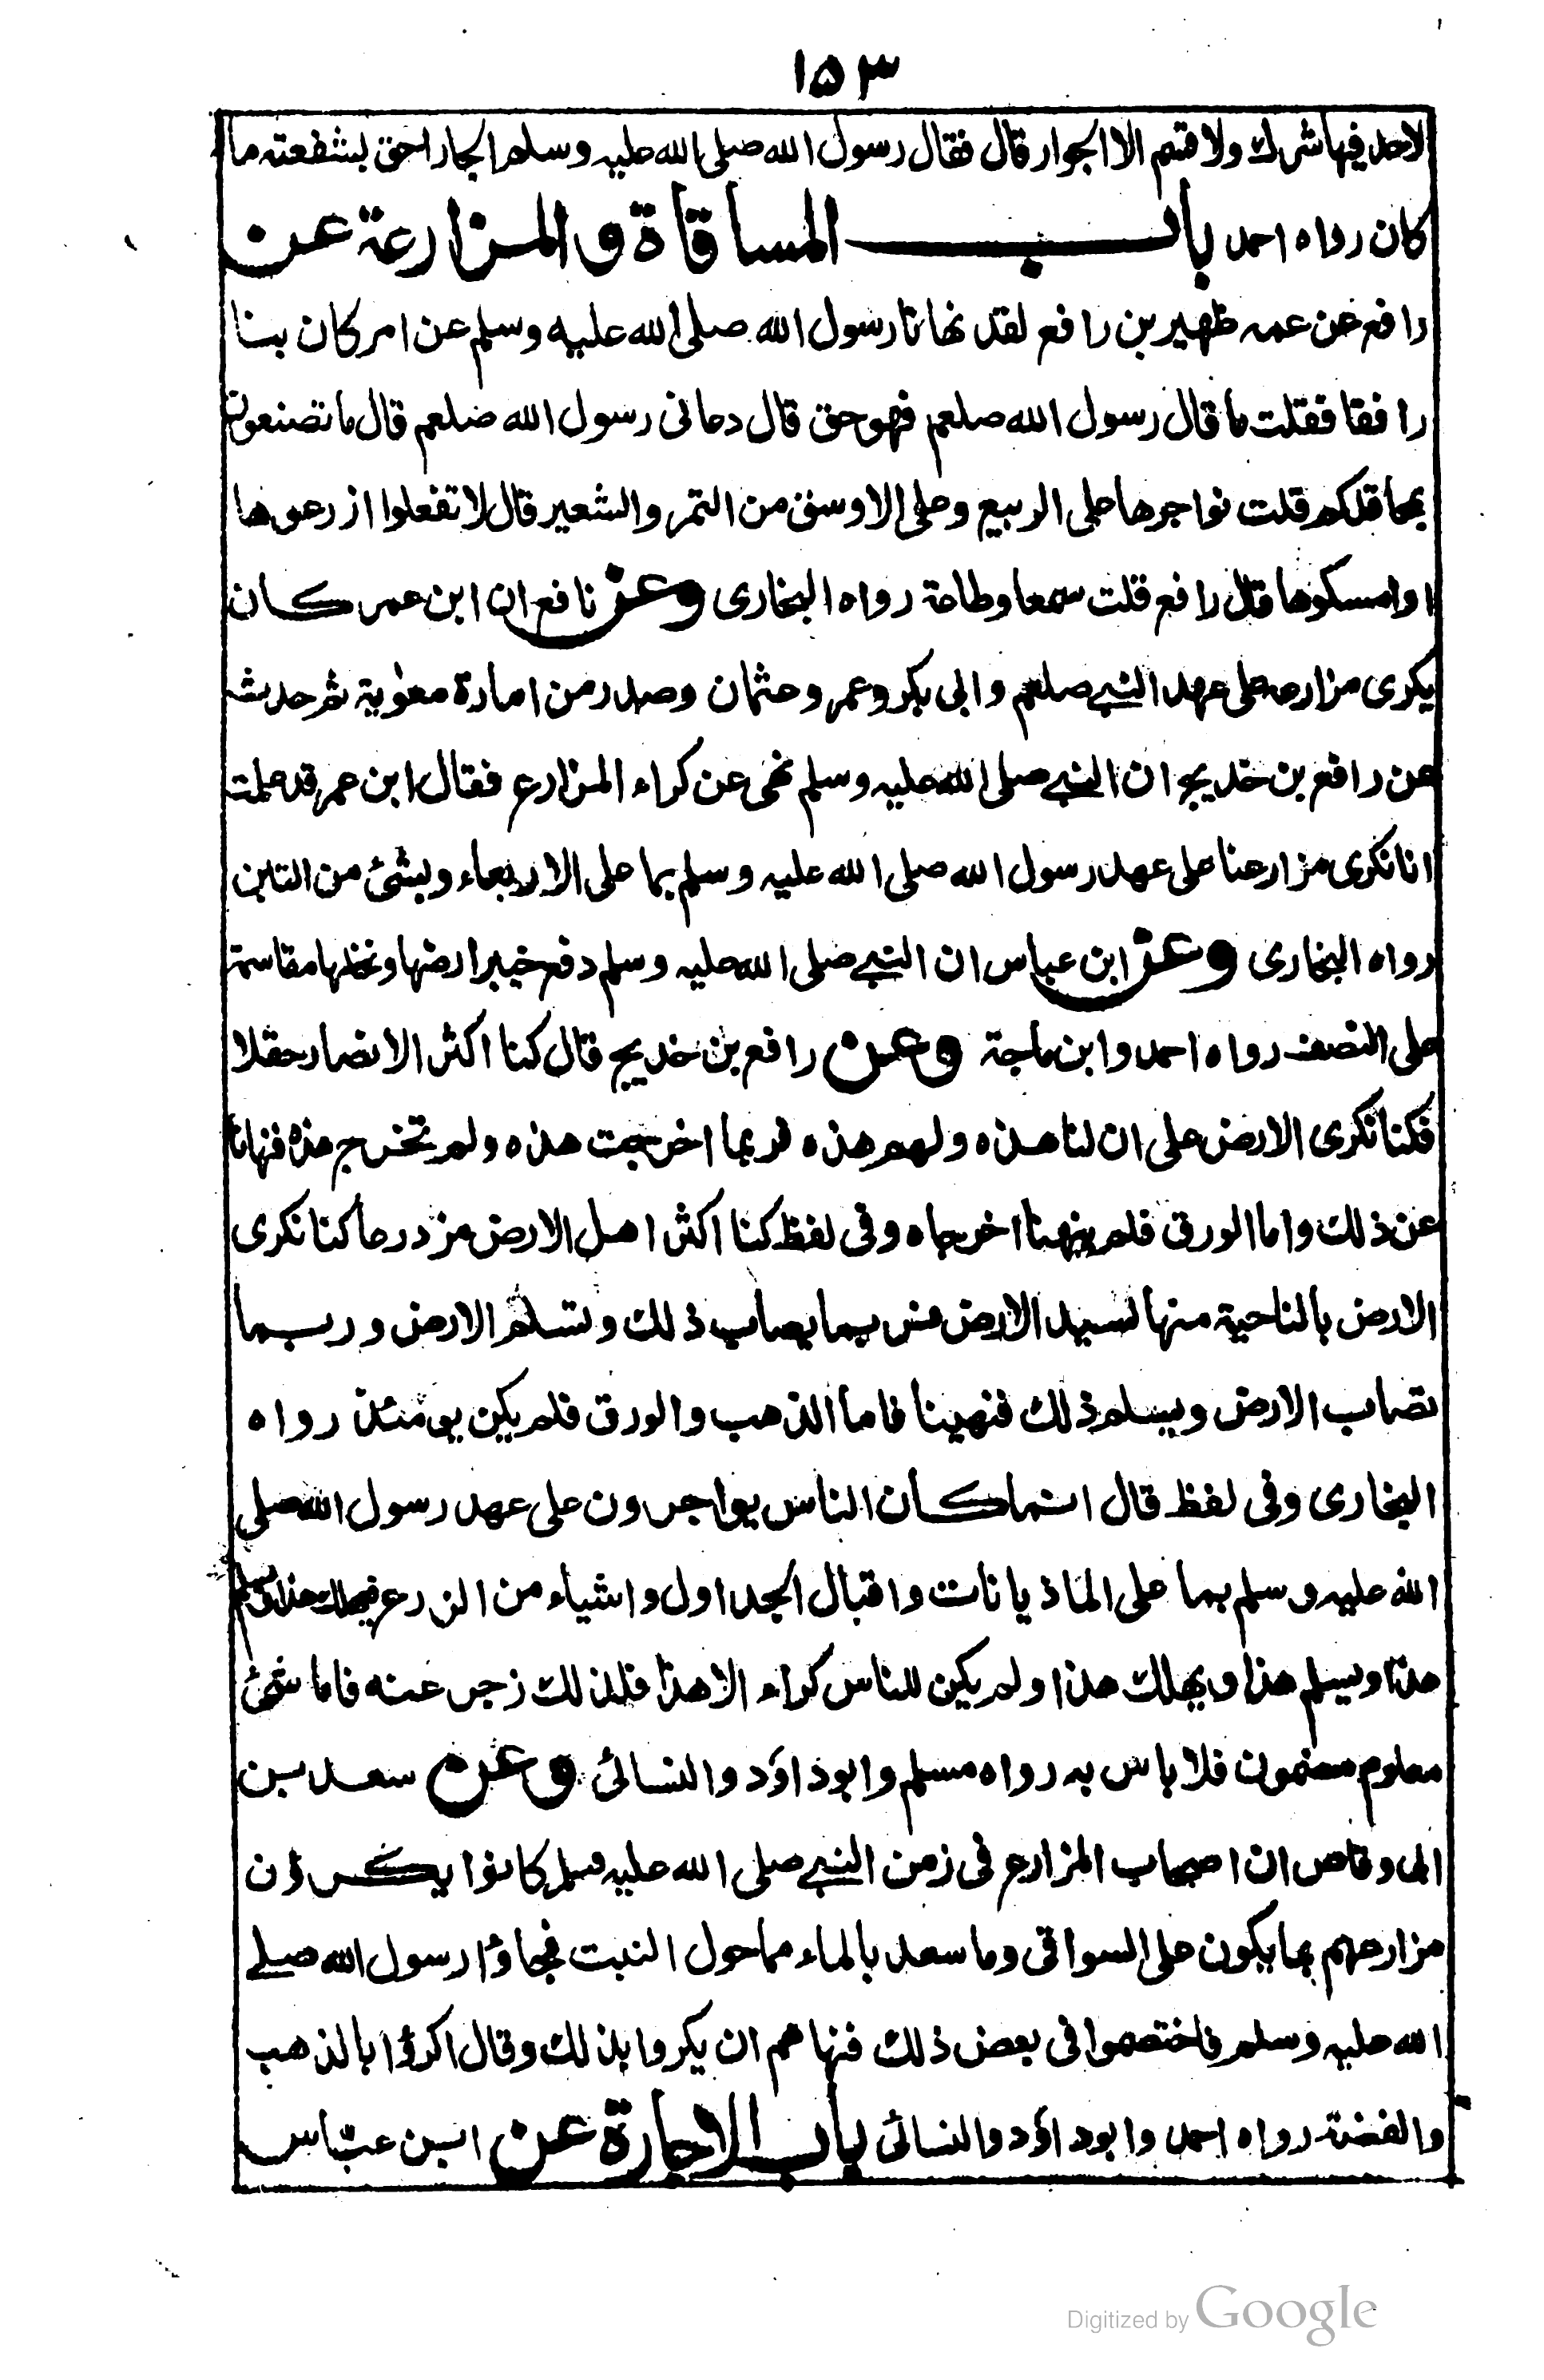 ١٥٣
لاحد فيها شرك ولا قسم الا الجوار قال فقال رسول الله صلى الله عليه وسلم الجار احق بشفعته ما
كان رواه احمد باب المساقاة والمزارعة عن
رافع عن عمه ظهير بن رافع لقد نهانا رسول الله صلى الله عليه وسلم عن امر كان بنا
رافقا فقلت ما قال رسول الله صلعم فهو حق قال دعانى رسول الله صلعم قال ما تصنعون
بمحاقلكم قلت نواجرها على الربيع وعلى الاوسق من التمر والشعير قال لا تفعلوا ازرعوها
او امسكوها قال رافع قلت سمعا وطاعة رواه البخارى وعن نافع ان ابن عمر كان
يكرى مزارعه على عهد النبي صلعم وابى بكر وعمر وعثمان وصدر من امارة معوية ثم حدث
عن رافع بن خديج ان النبي صلى الله عليه وسلم نهى عن كراء المزارع فقال ابن عمر قد علمت
انا نكرى مزارعنا على عهد رسول الله صلى الله عليه وسلم بما على الاربعاء وبشئ من التبن
رواه البخارى وعن ابن عباس ان النبي صلى الله عليه وسلم دفع خيبر ارضها ونخلها مقاسمة
على النصف رواه احمد وابن ماجة وعن رافع بن خديج قال كنا اكثر الانصار حقلا
فكنا نكرى الارض على ان لنا هذه ولهم هذه فربما اخرجت هذه ولم تخرج هذه فنهانا
عن ذلك واما الورق فلم ينهنا اخرجاه وفى لفظ كنا اكثر اهل الارض مزدرعا كنا نكرى
الارض بالناحية منها لسيد الارض فربما يصاب ذلك وتسلم الارض وربما
تصاب الارض ويسلم ذلك فنهينا فاما الذهب والورق فلم يكن يومئذ رواه
البخارى وفى لفظ قال انما كان الناس يواجرون على عهد رسول الله صلى
الله عليه وسلم بما على الماذيانات واقبال الجداول واشياء من الزرع فيهلك هذا ويسلم
هذا ويسلم هذا ويهلك هذا ولم يكن للناس كراء الا هذا فلذلك زجر عنه فاما شئ
معلوم مضمون فلا باس به رواه مسلم وابو داؤد والنسائى وعن سعد بن
ابى وقاص ان اصحاب المزارع فى زمن النبي صلى الله عليه وسلم كانوا يكرون
مزارعهم بما يكون على السواقى وما سعد بالماء مما حول النبت فجاؤا رسول الله صلے
الله عليه وسلم فاختصموا فى بعض ذلك فنهاهم ان يكروا بذلك وقال اكرؤا بالذهب
والفضة رواه احمد وابو داؤد والنسائى باب الاجارة عن ابن عباس
Digitized by Google